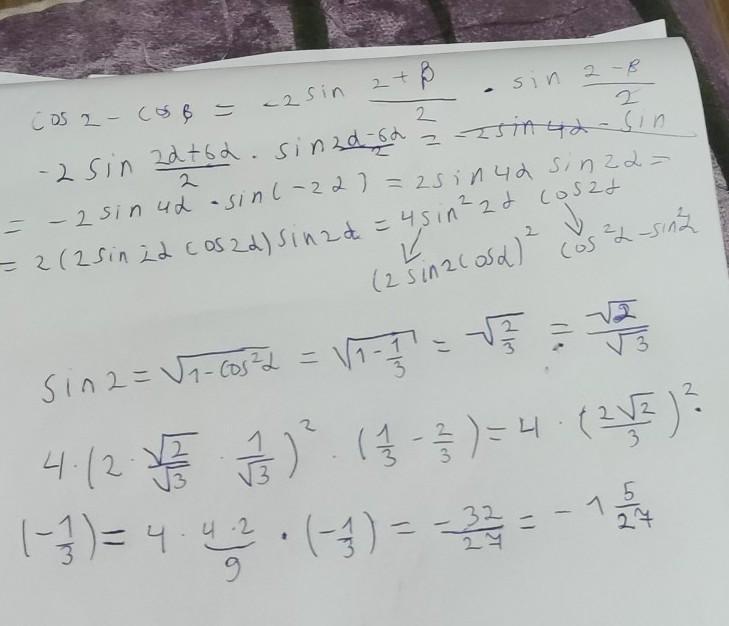 cos2 - cosβ = -2sin (2+β)/2 · sin (2-β)/2
-2 sin (2α+6α)/2 · sin (2α-6α)/2 = -2sin4α - sin
= -2sin4α · sin(-2α) = 2sin4α sin2α =
= 2(2sin2α cos2α)sin2α = 4sin²2α cos2α
(2sin2cosα)² cos²α-sin²α
sin2 = √(1-cos²α) = √(1-1/3) = √(2/3) = √2/√3
4·(2·√2/√3·1/√3)²·(1/3-2/3) = 4·(2√2/3)²·
(-1/3) = 4·(4·2)/9·(-1/3) = -32/27 = -1 5/27